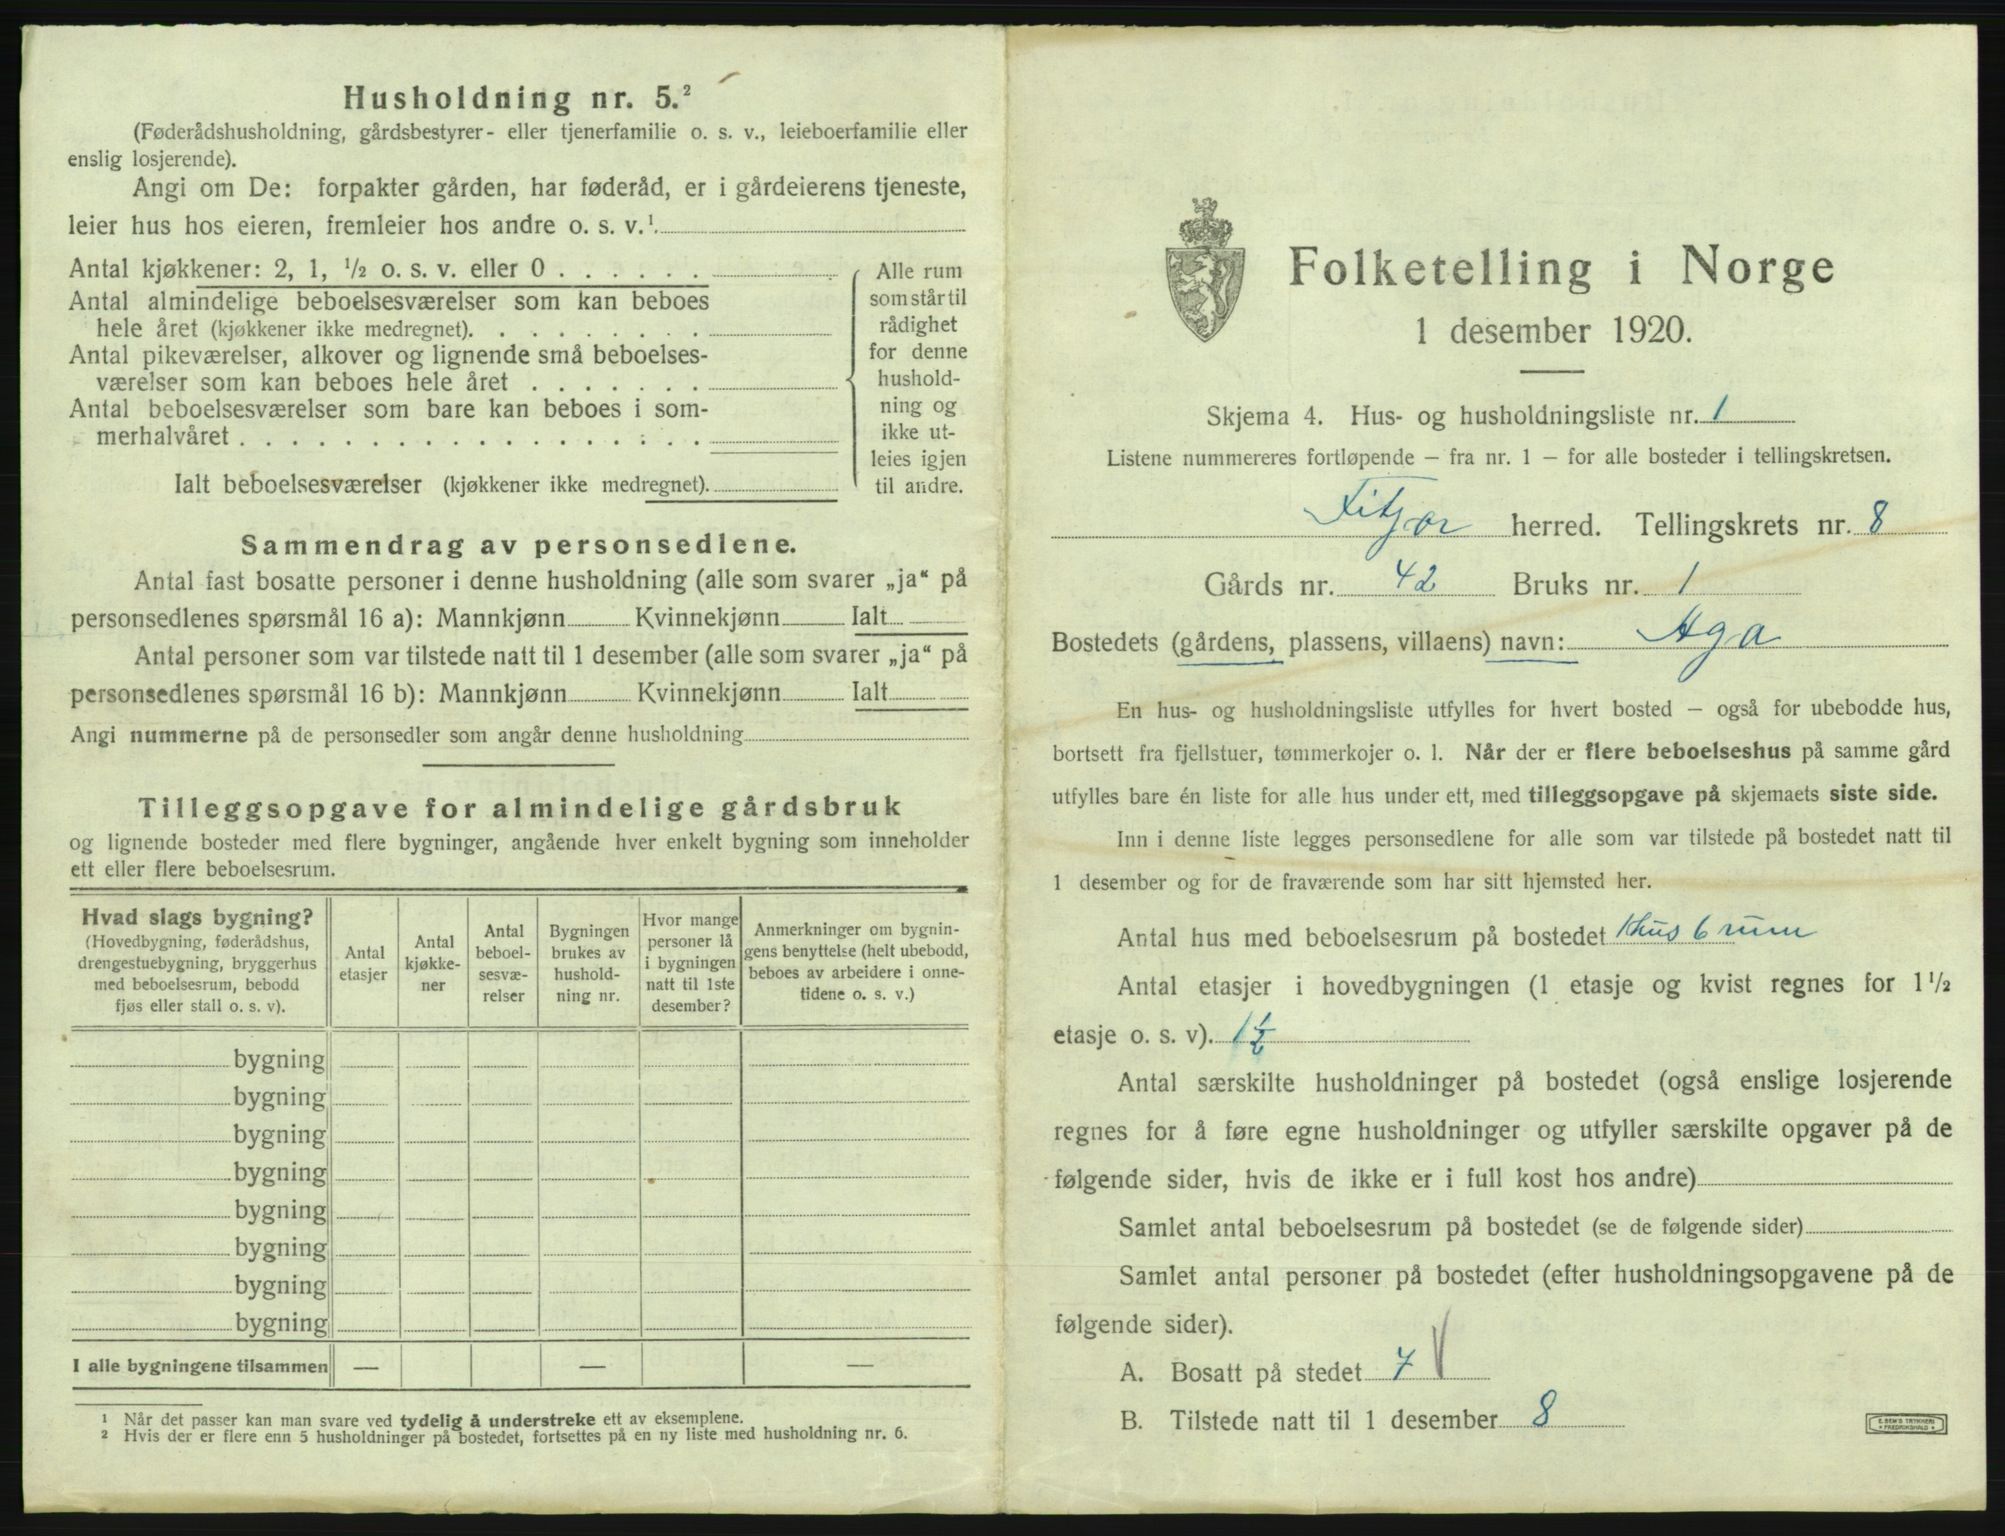 Husholdning nr. 5.²
(Føderådshusholdning, gårdsbestyrer- eller tjenerfamilie o. s. v., leieboerfamilie eller
enslig losjerende).
Angi om De: forpakter gården, har føderåd, er i gårdeierens tjeneste,
leier hus hos eieren, fremleier hos andre o. s. v.¹
Antal kjøkkener: 2, 1, ½ o. s. v. eller 0 . . . . . .
Antal almindelige beboelsesværelser som kan beboes
hele året (kjøkkener ikke medregnet). . . . . . . . .
Antal pikeværelser, alkover og lignende små beboelses-
værelser som kan beboes hele året . . . . . . .
Antal beboelsesværelser som bare kan beboes i som-
merhalvåret . . . . . . . . . . . . . . . . . .
Ialt beboelsesværelser (kjøkkener ikke medregnet).
Alle rum
som står til
rådighet
for denne
hushold-
ning og
ikke ut-
leies igjen
til andre.
Sammendrag av personsedlene.
Antal fast bosatte personer i denne husholdning (alle som svarer „ja“ på
personsedlenes spørsmål 16 a): Mannkjønn Kvinnekjønn Ialt
Antal personer som var tilstede natt til 1 desember (alle som svarer „ja“ på
personsedlenes spørsmål 16 b): Mannkjønn Kvinnekjønn Ialt
Angi nummerne på de personsedler som angår denne husholdning
Tilleggsopgave for almindelige gårdsbruk
og lignende bosteder med flere bygninger, angående hver enkelt bygning som inneholder
ett eller flere beboelsesrum.
Hvad slags bygning?
(Hovedbygning, føderådshus,
drengestuebygning, bryggerhus
med beboelsesrum, bebodd
fjøs eller stall o. s. v).
Antal
etasjer
Antal
kjøkke-
ner
Antal
beboel-
sesvæ-
relser
Bygningen
brukes av
hushold-
ning nr.
Hvor mange
personer lå
i bygningen
natt til 1ste
desember?
Anmerkninger om bygnin-
gens benyttelse (helt ubebodd,
beboes av arbeidere i onne-
tidene o. s. v.)
bygning
bygning
bygning
bygning
bygning
bygning
bygning
bygning
I alle bygningene tilsammen — — —
1 Når det passer kan man svare ved tydelig å understreke ett av eksemplene.
2 Hvis der er flere enn 5 husholdninger på bostedet, fortsettes på en ny liste med husholdning nr. 6.
Folketelling i Norge
1 desember 1920.
Skjema 4. Hus- og husholdningsliste nr. 1
Listene nummereres fortløpende – fra nr. 1 – for alle bosteder i tellingskretsen.
Fitjar herred. Tellingskrets nr. 8
Gårds nr. 42 Bruks nr. 1
Bostedets (gårdens, plassens, villaens) navn: Aga
En hus- og husholdningsliste utfylles for hvert bosted – også for ubebodde hus,
bortsett fra fjellstuer, tømmerkojer o. l. Når der er flere beboelseshus på samme gård
utfylles bare én liste for alle hus under ett, med tilleggsopgave på skjemaets siste side.
Inn i denne liste legges personsedlene for alle som var tilstede på bostedet natt til
1 desember og for de fraværende som har sitt hjemsted her.
Antal hus med beboelsesrum på bostedet 1 hus 6 rum
Antal etasjer i hovedbygningen (1 etasje og kvist regnes for 1½
etasje o. s. v). 1½
Antal særskilte husholdninger på bostedet (også enslige losjerende
regnes for å føre egne husholdninger og utfyller særskilte opgaver på de
følgende sider, hvis de ikke er i full kost hos andre)
Samlet antal beboelsesrum på bostedet (se de følgende sider)
Samlet antal personer på bostedet (efter husholdningsopgavene på de
følgende sider).
A. Bosatt på stedet 7
B. Tilstede natt til 1 desember 8
E. SEM'S TRYKKERI
FREDRIKSHALD